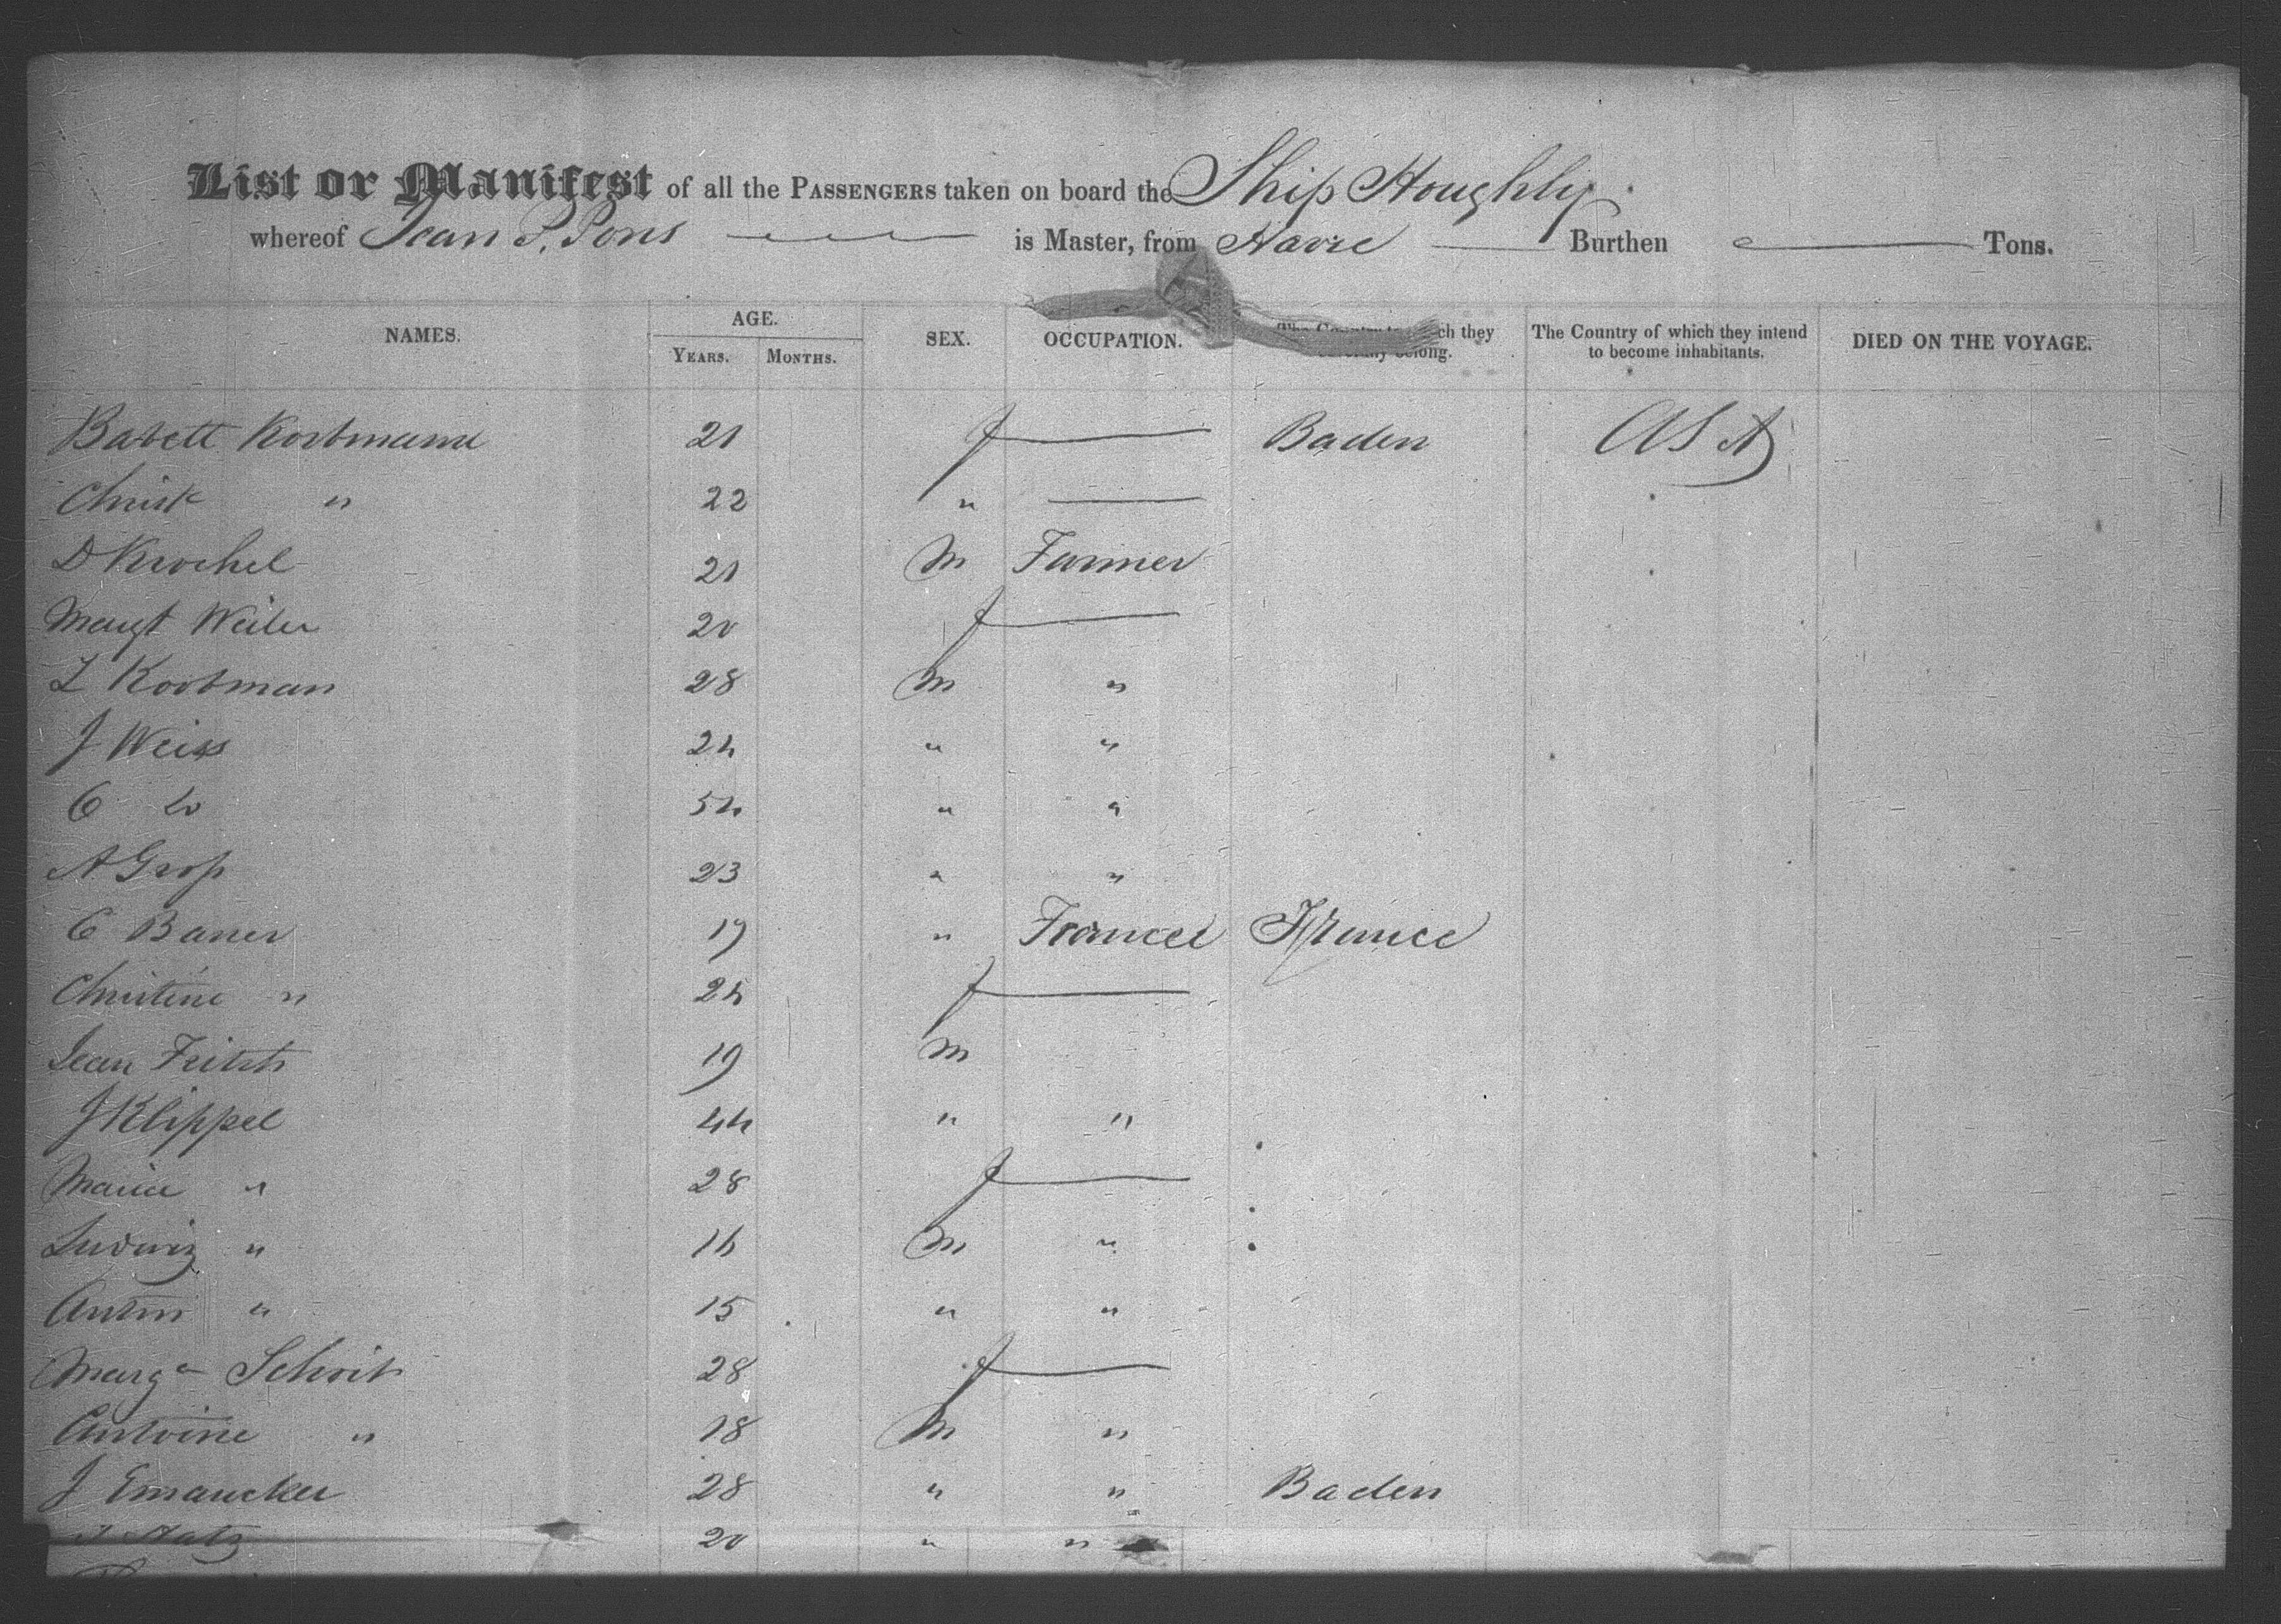 List or Manifest of all the PASSENGERS taken on board the Ship Houghly
whereof Jean P. Pons is Master, from Havre Burthen Tons.
NAMES. AGE. YEARS. MONTHS. SEX. OCCUPATION. ch they belong. The Country of which they intend to become inhabitants. DIED ON THE VOYAGE.
Babett Kortmann 21 f Baden USA
Christ " 22 "
D Krochel 21 M Farmer
Margt Weiler 20 f
L Kortman 28 M "
J Weiss 24 " "
C Do 54 " "
A Gross 23 " "
C Baner 19 " France France
Christine " 24 f
Jean Fritsh 19 M
J Klippel 44 " "
Maria " 28 f
Ludwig " 16 M "
Anton " 15 " "
Marga Schoit 28 f
Antoine " 18 M "
J Emancker 28 " " Baden
Hatz 20 " "